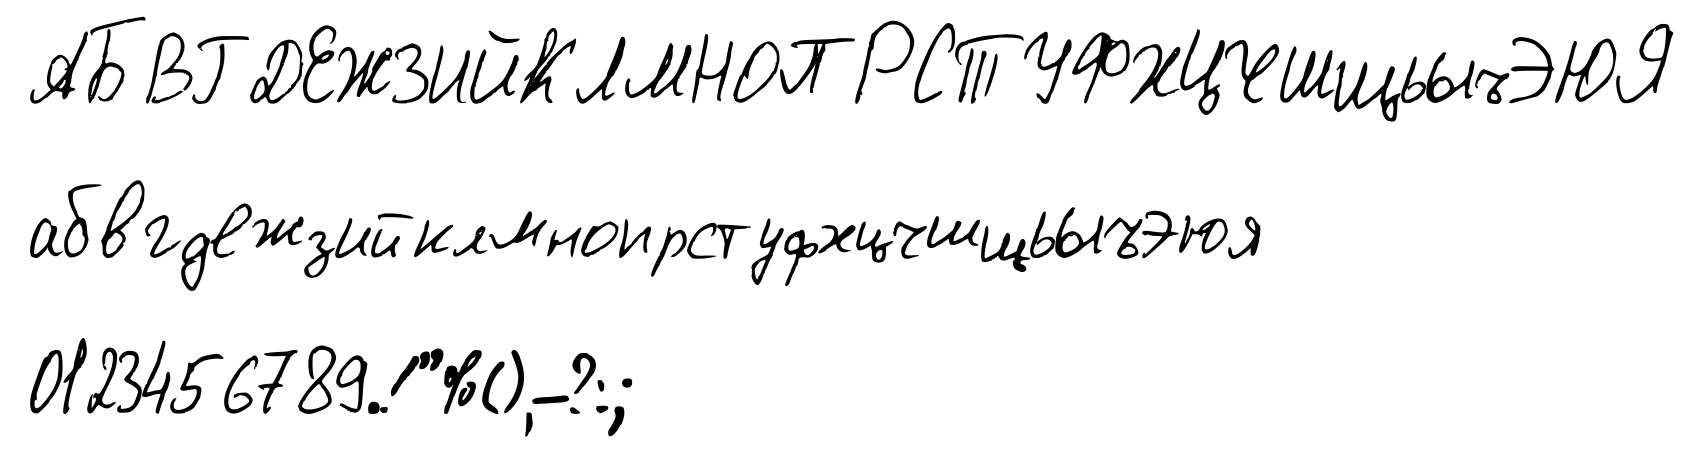 АБВГДЕЖЗИЙКЛМНОПРСТУФХЦЧШЩЬЫЪЭЮЯ
абвгдежзийклмнопрстуфхцчшщьыъэюя
0123456789.!”%(),–?:;